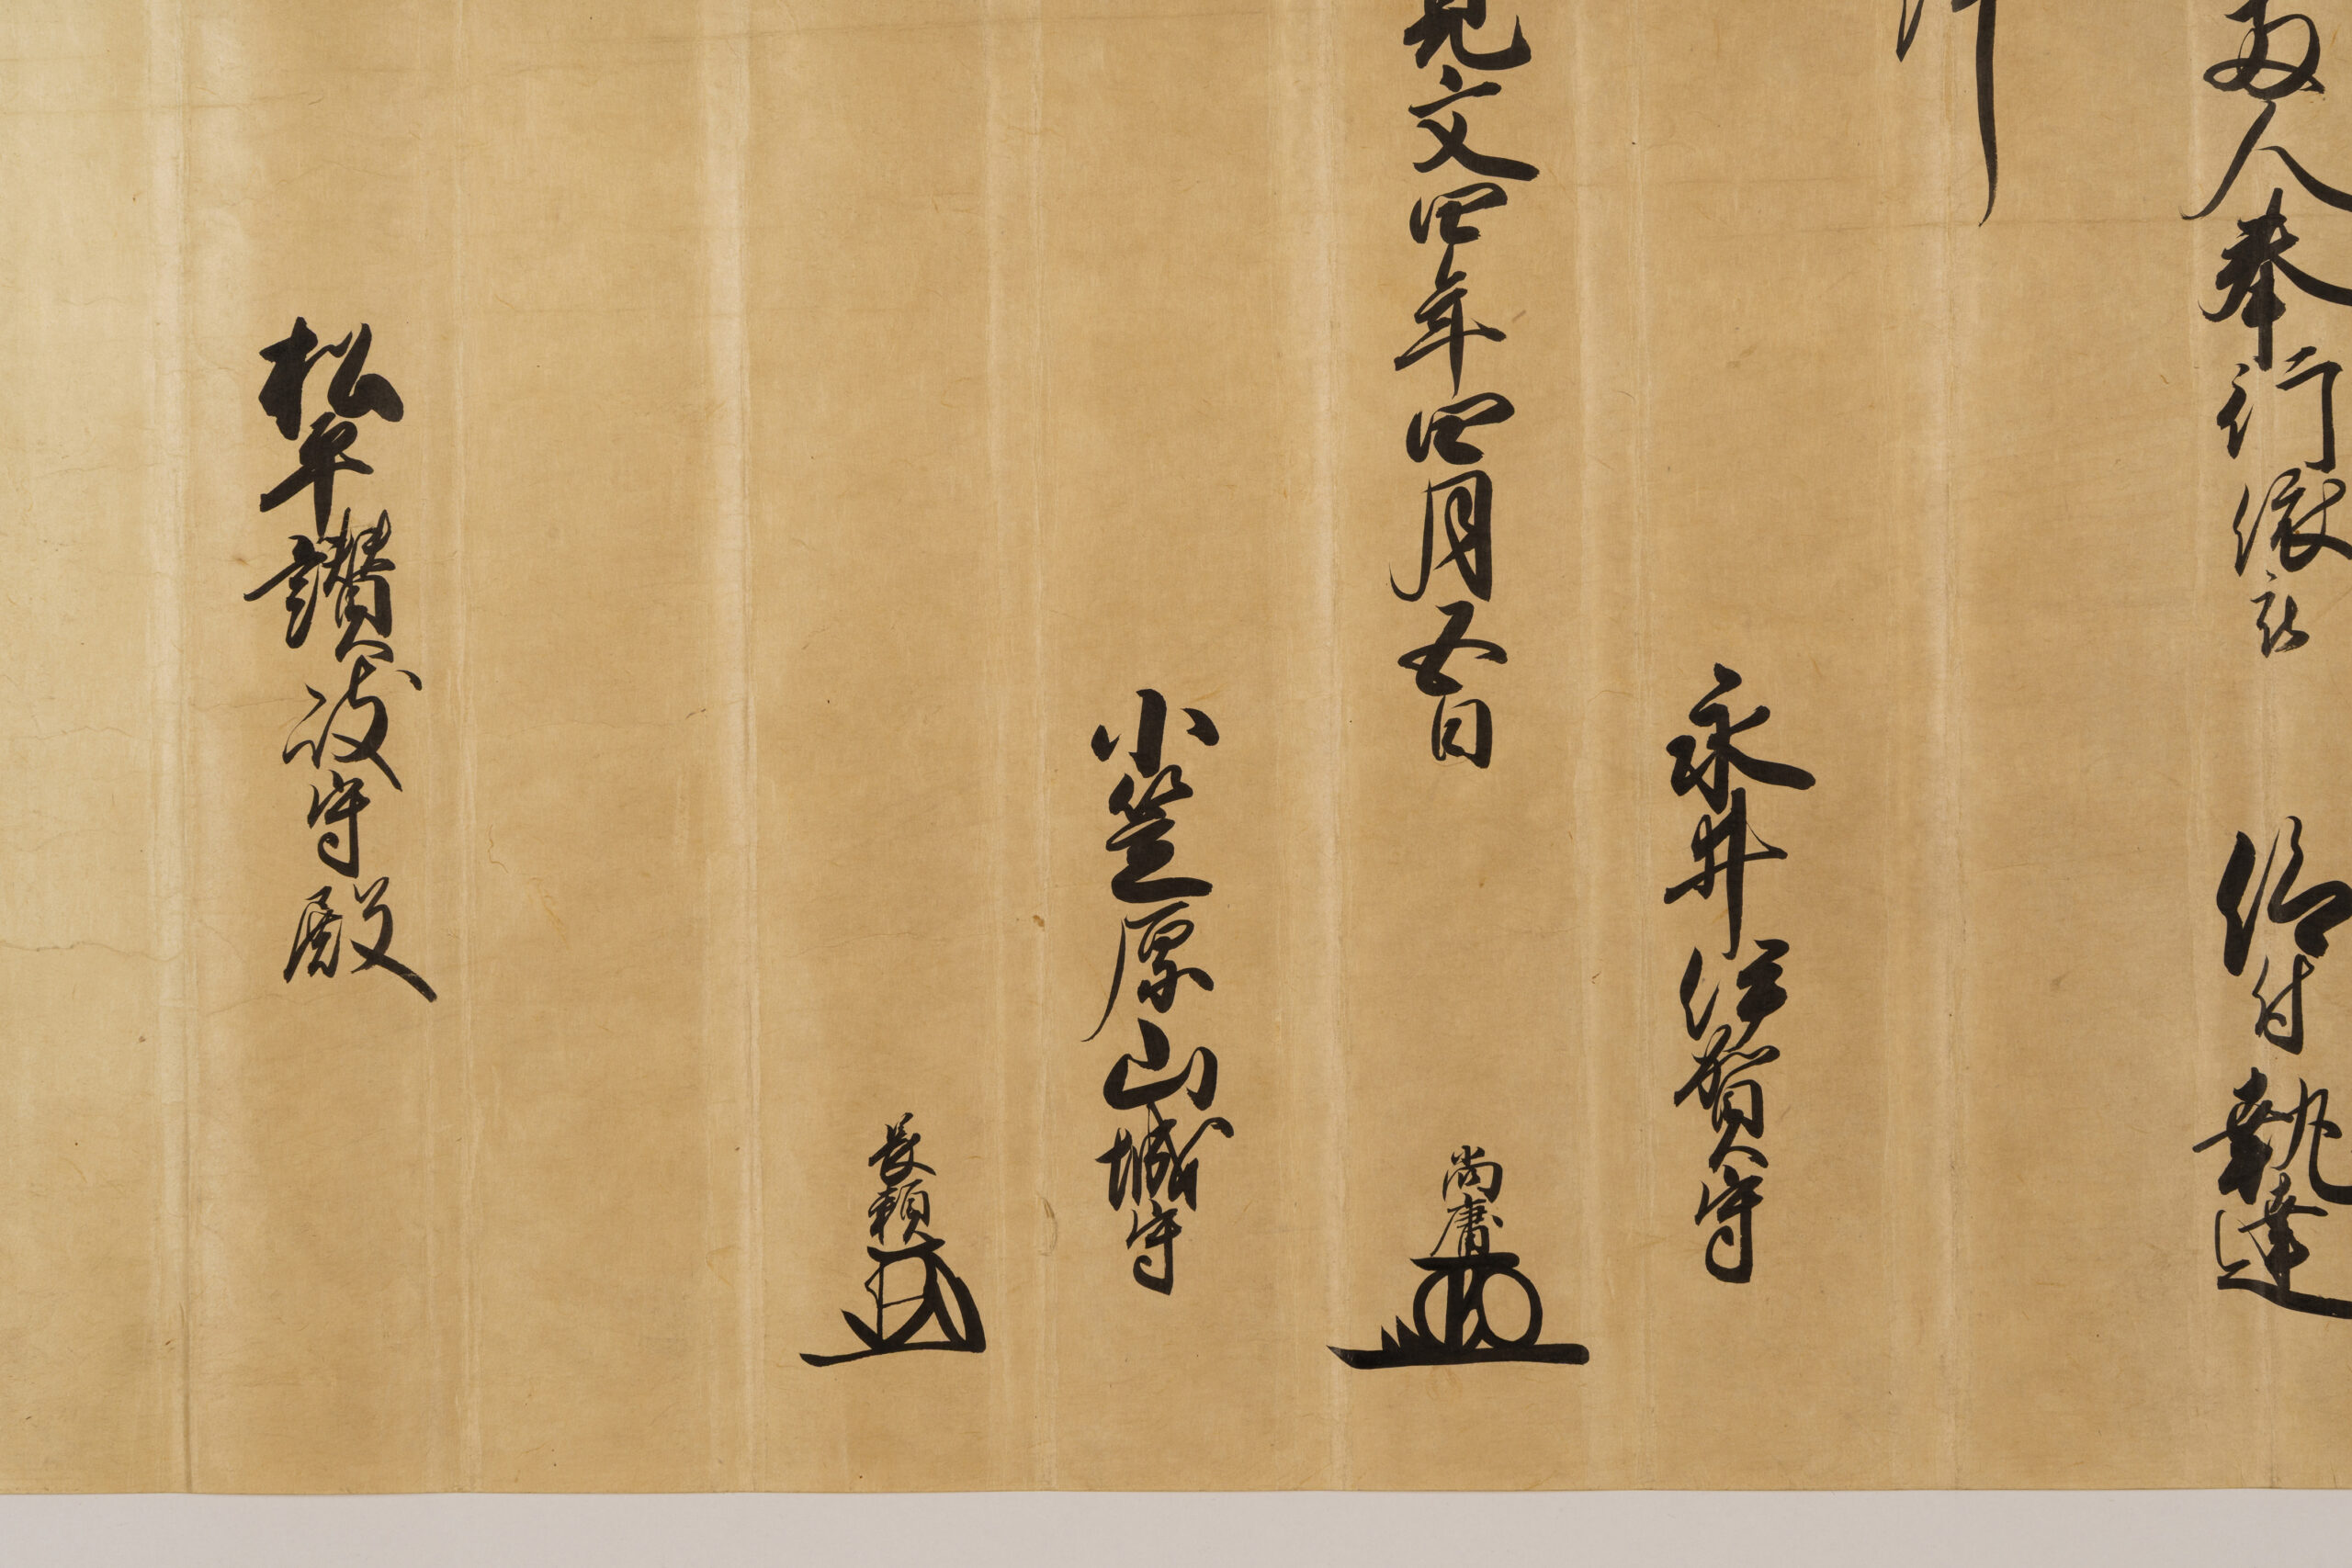 両人奉行依被 仰付執達
件
永井伊賀守
寛文四年四月五日
尚庸
小笠原山城守
長頼
松平讃岐守殿